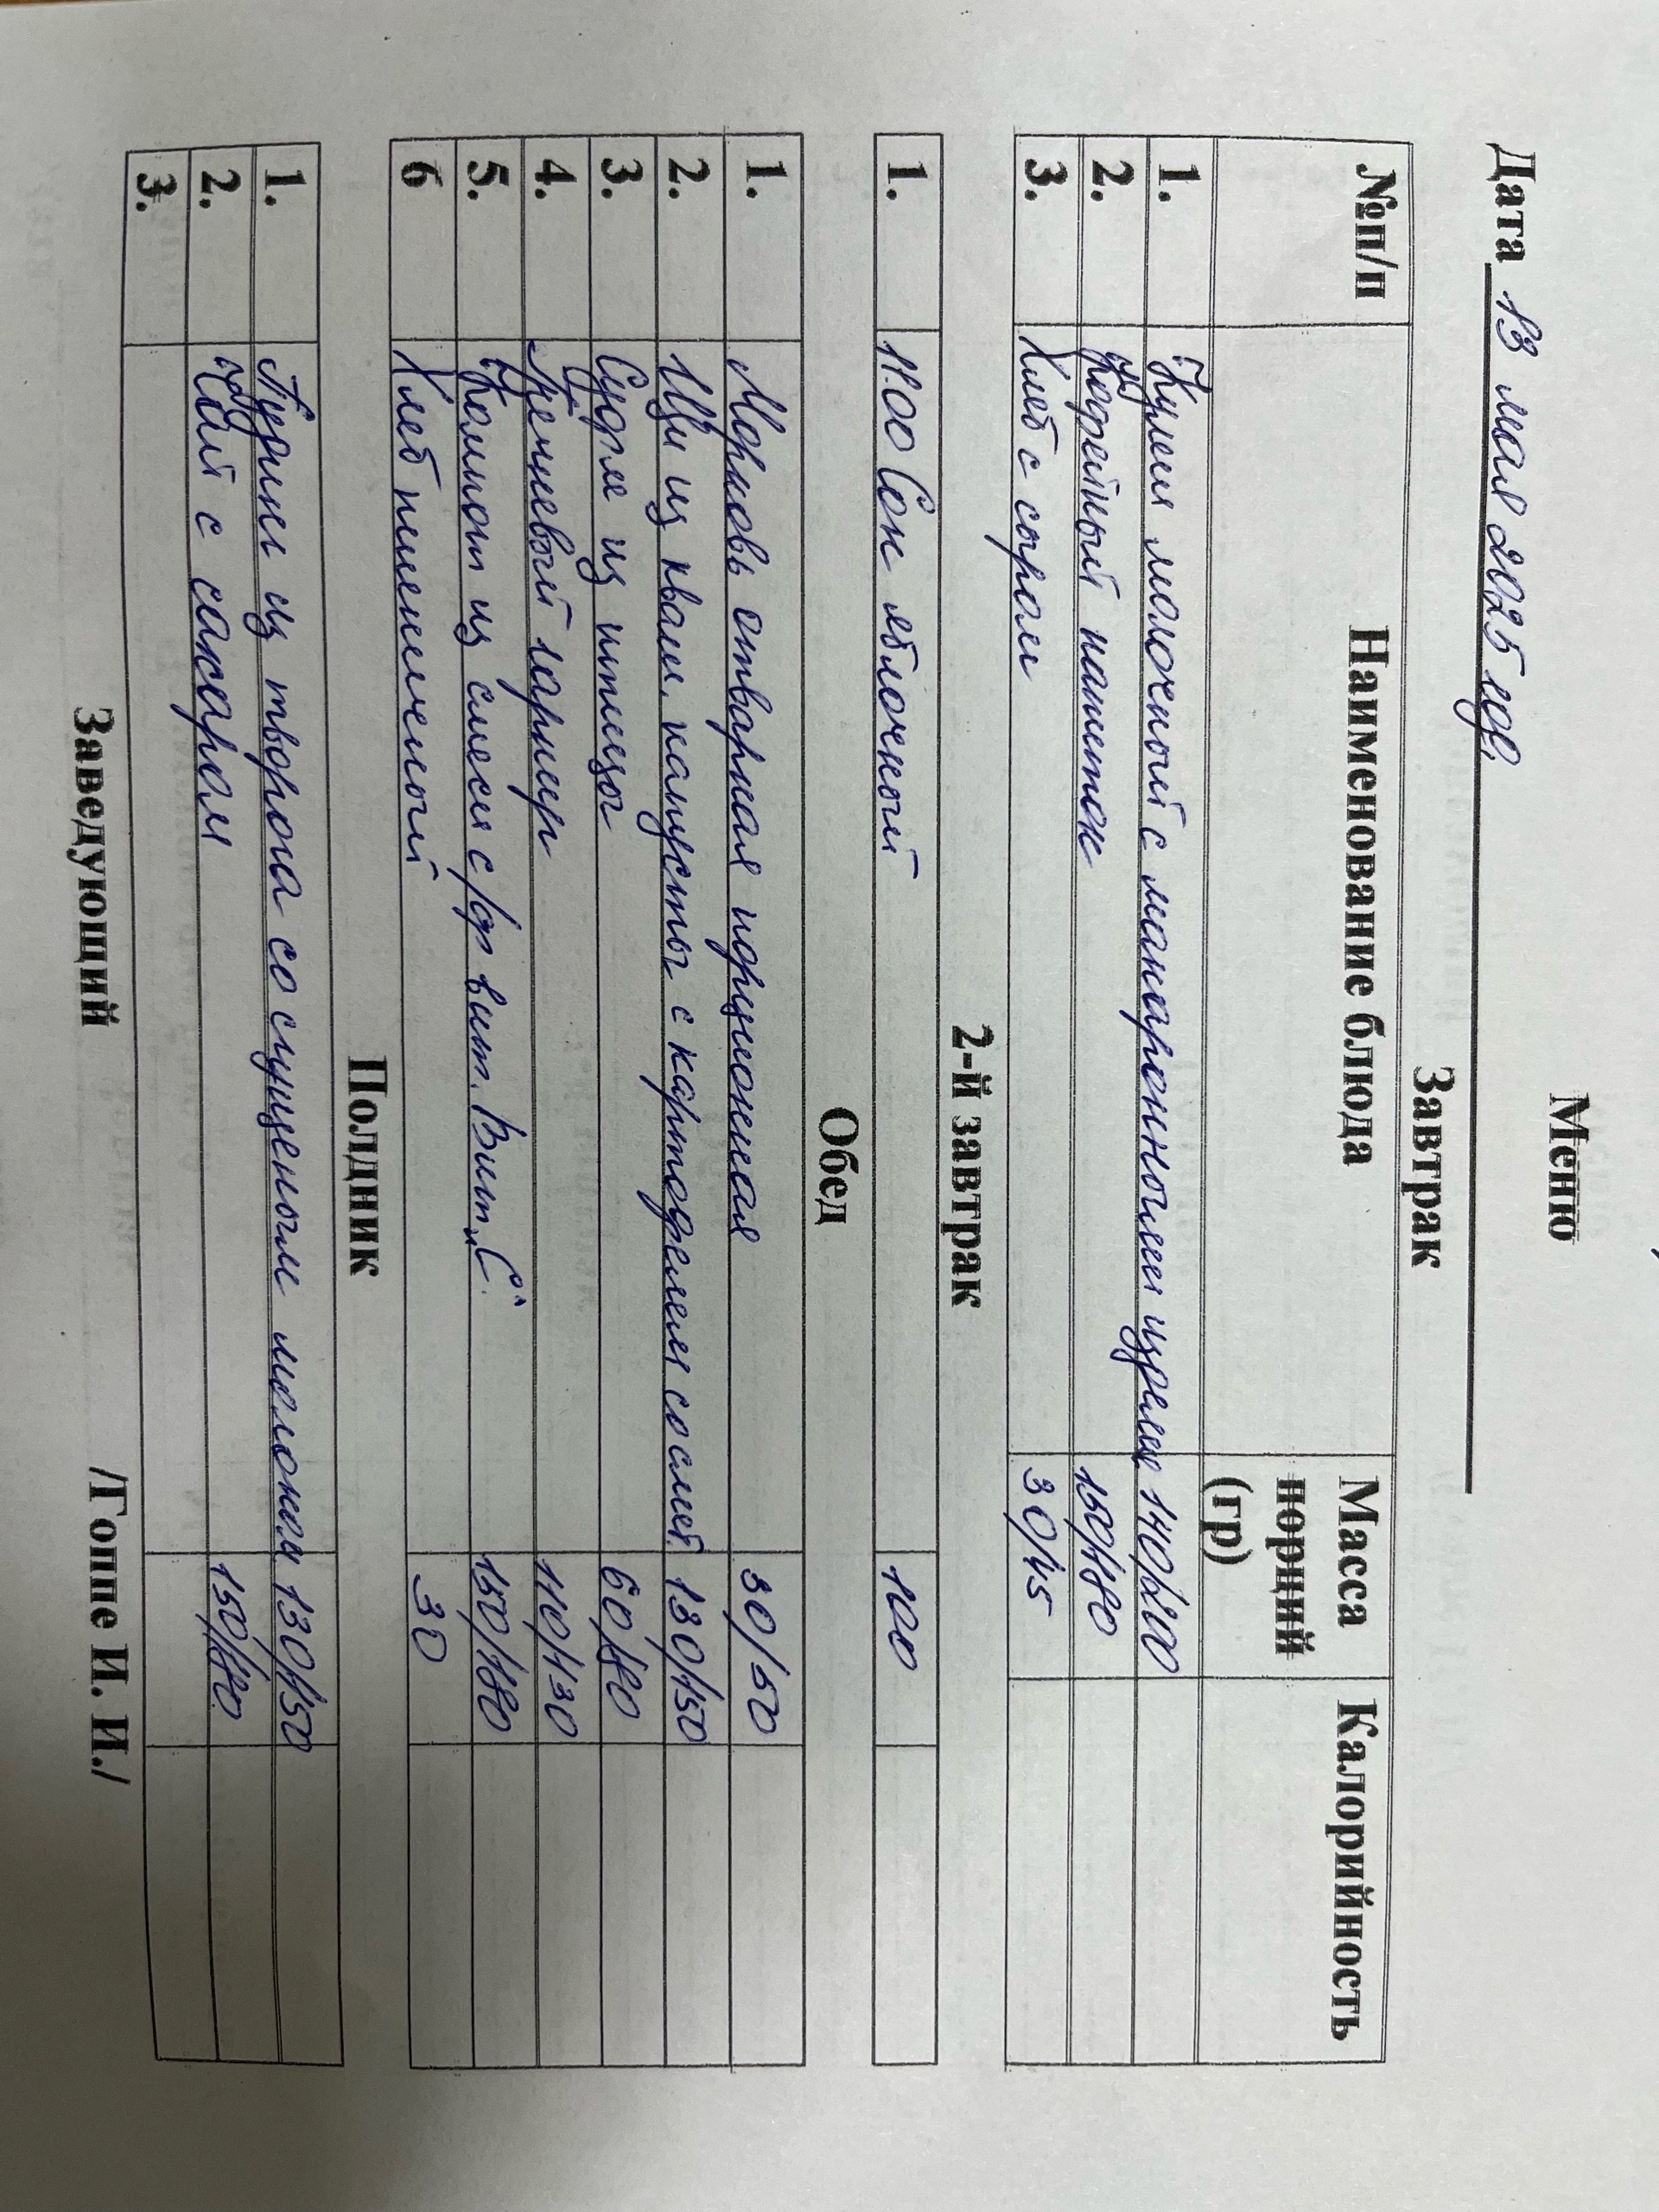 Меню
Дата 13 мая 2025 год.
Завтрак
№п/п Наименование блюда Масса порций (гр) Калорийность
1. Суп молочный с макаронными издели 140/200
2. Кофейный напиток 150/180
3. Хлеб с сыром 30/45
2-й завтрак
1. 11.00 Сок яблочный 100
Обед
1. Морковь отварная порционная 30/50
2. Щи из кваш. капусты с картофелем со смет. 130/150
3. Суфле из птицы 60/80
4. Гречневый гарнир 110/130
5. Компот из смеси с/ф вит. Вит „С“ 150/180
6 Хлеб пшеничный 30
Полдник
1. Пудинг из творога со сгущеным молоком 130/150
2. Чай с сахаром 150/180
3.
Заведующий /Гоппе И. И./